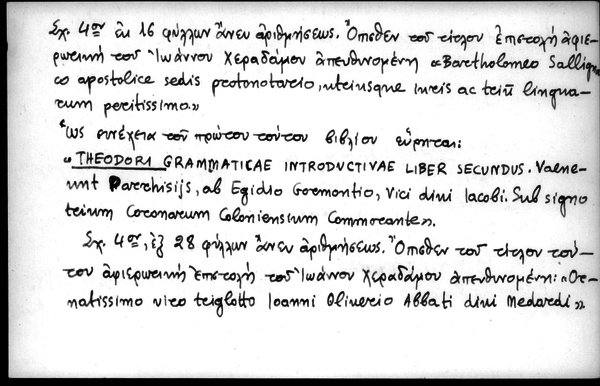 Σχ. 4ον ἐκ 16 φύλλων ἄνευ ἀριθμήσεως. Ὄπισθεν τοῦ τίτλου ἐπιστολὴ ἀφιε-
ρωτικὴ τοῦ Ἰωάννου Χεραδάμου ἀπευθυνομένη «Bartholomeo Salligna-
co apostolice sedis protonotario, utriusque iuris ac triũ lingua-
rum peritissimo.»
Ὡς συνέχεια τοῦ πρώτου τούτου βιβλίου εὕρηται:
«THEODORI GRAMMATICAE INTRODUCTIVAE LIBER SECUNDUS. Vaene-
unt Parrhisijs, ab Egidio Gormontio, vici dini Iacobi. Sub signo
trium Coronarum Coloniensium Commorante».
Σχ. 4ον, ἐξ 28 φύλλων ἄνευ ἀριθμήσεως. Ὄπισθεν τοῦ τίτλου τού-
του ἀφιερωτικὴ ἐπιστολὴ τοῦ Ἰωάννου Χεραδάμου ἀπευθυνομένη: «Or-
natissimo viro triglotto Ioanni Oliuerio Abbati dini Medardi».